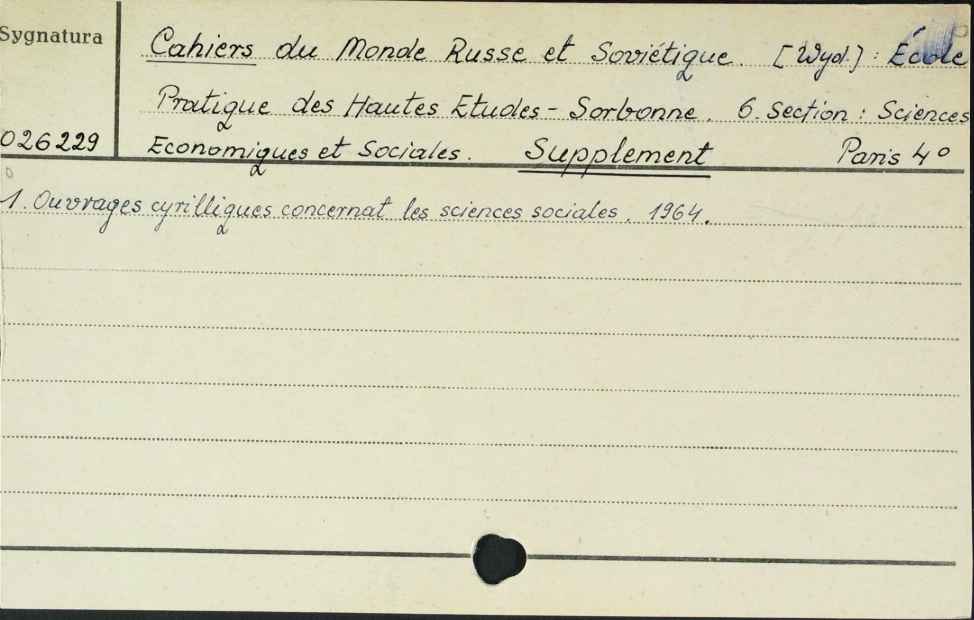 Sygnatura
Cahiers du Monde Russe et Soviétique. [Wyd.]: École
Pratique des Hautes Etudes - Sorbonne. 6. Section: Sciences
026229
Economiques et Sociales. Supplement Paris 4°
1. Ouvrages cyrilliques concernat les sciences sociales. 1964.